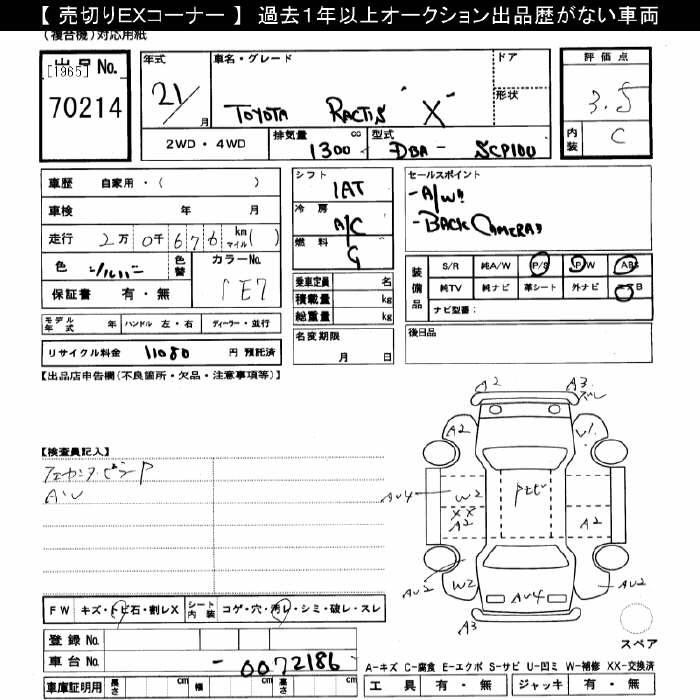 【 売切りEXコーナー 】 過去１年以上オークション出品歴がない車両
(複合機) 対応用紙
出品 No.
[1965]
70214
年式
21/
月
車名・グレード
TOYOTA RACTIS "X"
ドア
形状
評価点
3.5
内装 C
2WD・4WD
排気量 1300 cc
型式 DBA- SCP100
車歴 自家用・( )
車検 年 月
走行 2万 0千 6 7 6 km マイル ( )
色 シルバー 色替
カラーNo. 1E7
保証書 有・無
シフト
1AT
冷房
A/C
燃料
G
乗車定員 名
積載量 kg
総重量 kg
名変期限
月 日
セールスポイント
-A/W!!
-BACK CAMERA!!
装備品
S/R 純A/W P/S P/W ABS
純TV 純ナビ 革シート 外ナビ エアB
ナビ型番:
後日品
モデル年式 年 ハンドル 左・右 ディーラー・並行
リサイクル料金 11080 円 預託済
【出品店申告欄(不良箇所・欠品・注意事項等)】
【検査員記入】
A・U
A2
A3
ズレ
A2
U1
AU4
W2
XX
A2
A2
AU2
W2
AU4
AU2
A3
スペア
FW キズ・トビ石・割レX シート内装 コゲ・穴・汚レ・シミ・破レ・スレ
登録 No.
車台 No. - 0072186-
車庫証明用 長さ cm 幅 cm 高さ cm
A-キズ C-腐食 E-エクボ S-サビ U-凹ミ W-補修 XX-交換済
工具 有・無 ジャッキ 有・無